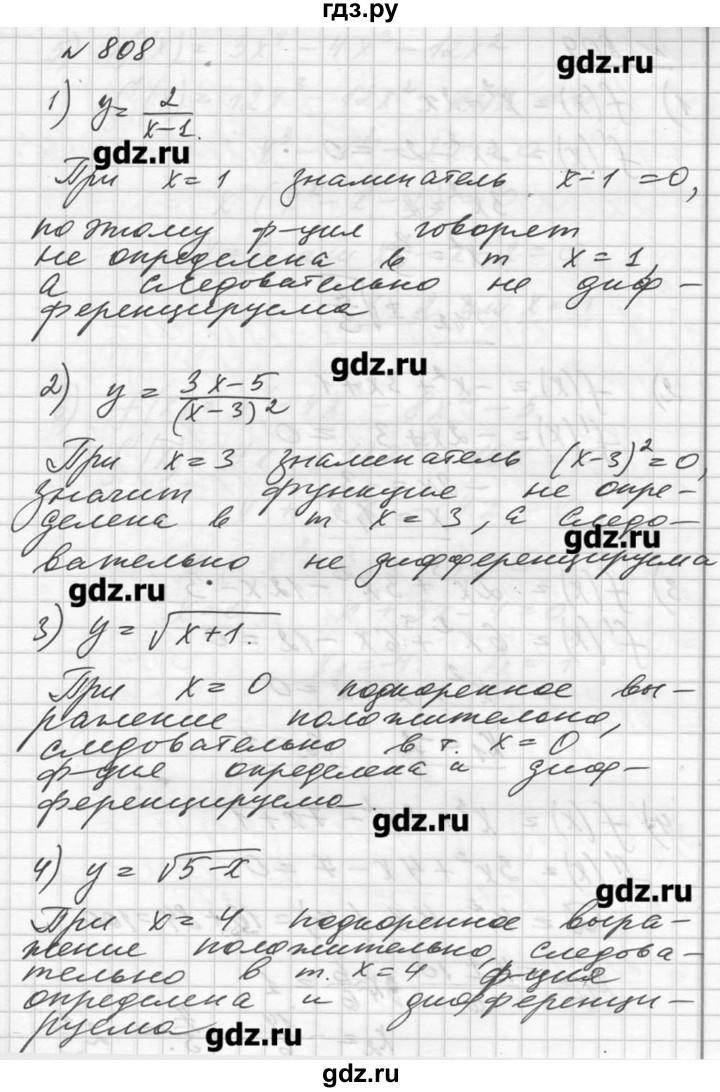 гдз.ру
№ 808
gdz.ru
1) y = 2/(x-1).
gdz.ru
При x=1 знаменатель x-1=0,
поэтому ф-ция говорят
не определена в т x=1,
а следовательно не диф-
ференцируема
gdz.ru
2) y = (3x-5)/(x-3)²
При x=3 знаменатель (x-3)²=0,
значит функция не опре-
делена в т x=3, а следо-
gdz.ru
вательно не дифференцируема
gdz.ru
3) y = √(x+1).
При x=0 подкоренное вы-
ражение положительно,
следовательно в т. x=0
ф-ция определена и диф-
ференцируема
gdz.ru
4) y = √(5-x)
gdz.ru
При x=4 подкоренное выра-
жение положительно, следова-
тельно в т. x=4 ф-ция
определена и дифференци-
руема
gdz.ru
gdz.ru